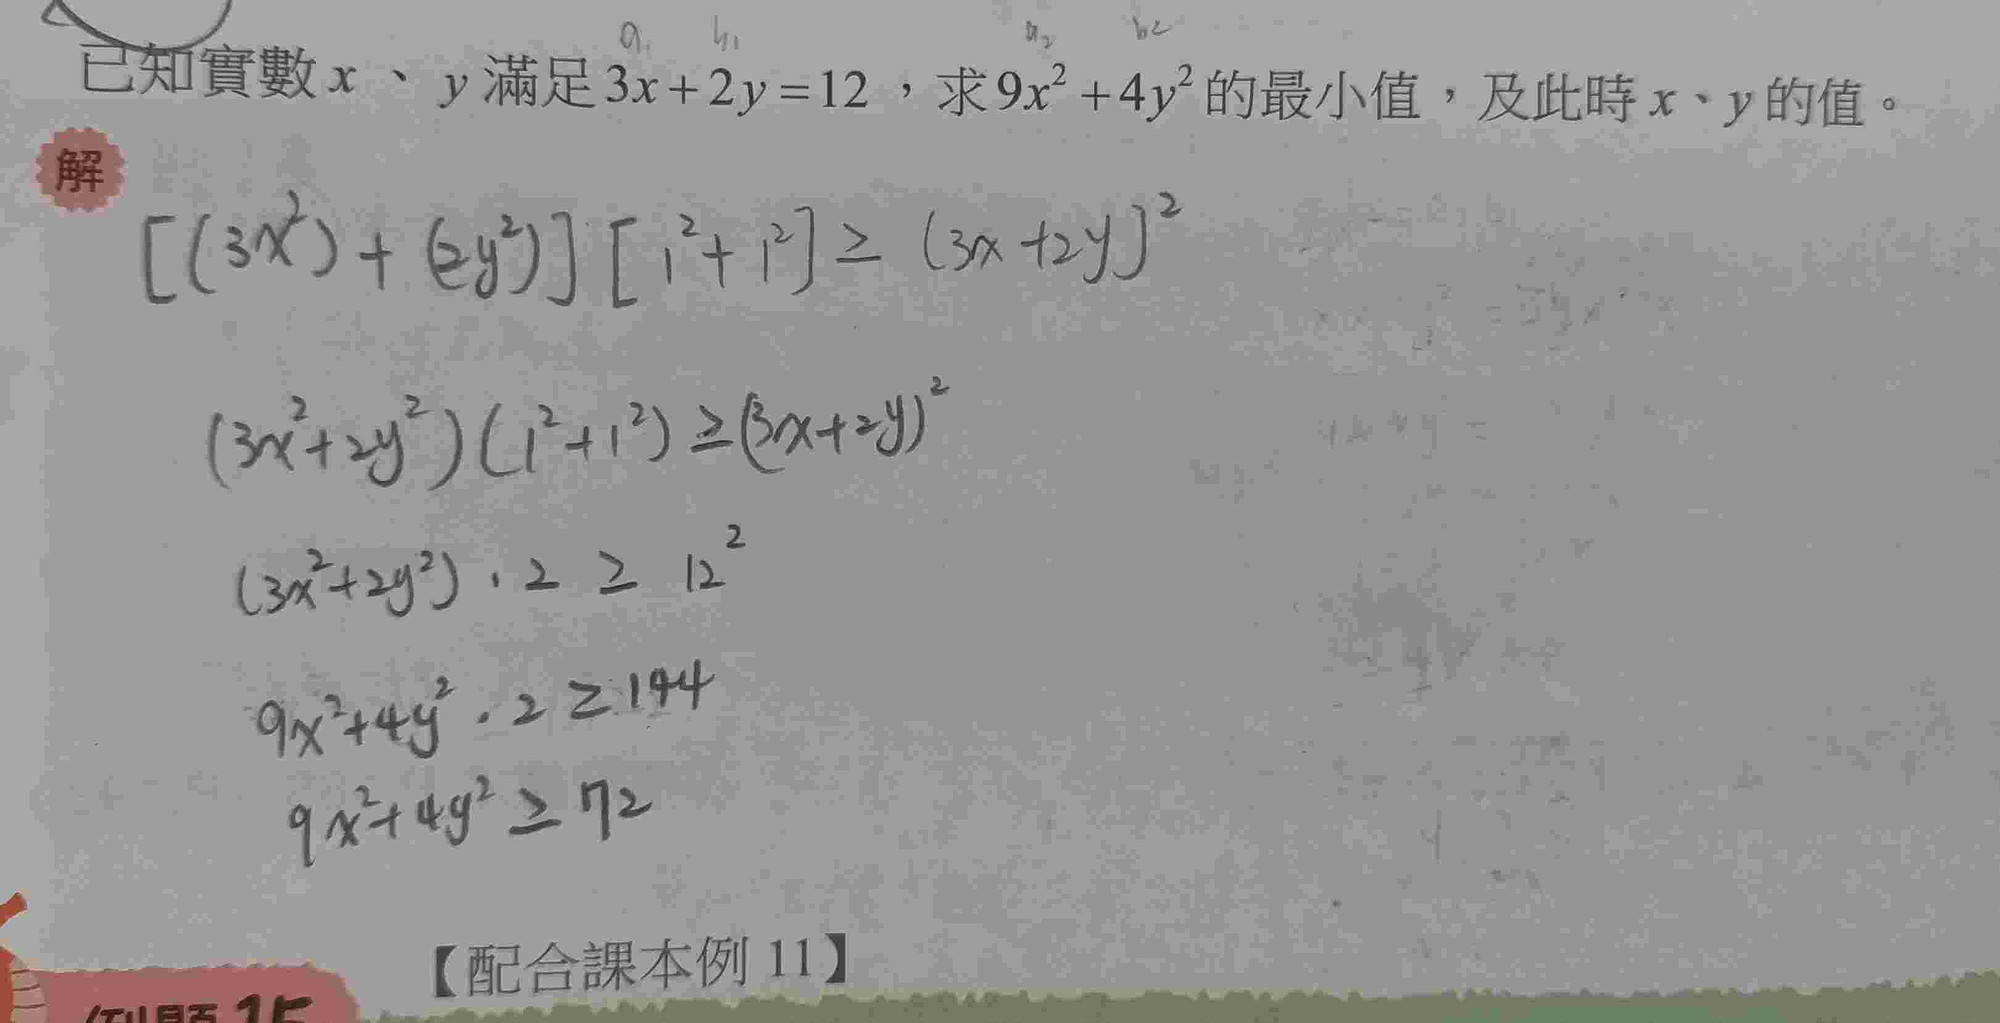 a₁ b₁ a₂ b₂
已知實數 x、y 滿足 3x+2y=12，求 9x²+4y² 的最小值，及此時 x、y 的值。
解
[(3x²)+(2y²)][1²+1²]≥(3x+2y]²
(3x²+2y²)(1²+1²)≥(3x+2y)²
(3x²+2y²)·2≥12²
9x²+4y²·2≥144
9x²+4y²≥72
【配合課本例 11】